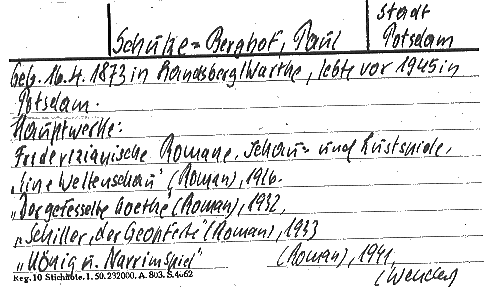 Stadt
Schulze-Berghof, Paul Potsdam
Geb. 16.4. 1873 in Landsberg/Warthe, lebte vor 1945 in
Potsdam.
Hauptwerke:
Frederizianische Romane, Schau- und Lustspiele,
"Eine Weltenschau" (Roman), 1926.
"Der gefesselte Goethe" (Roman), 1932,
"Schiller, der Geopferte" (Roman), 1933
"König u. Narrimspiel" (Roman), 1941,
Reg. 10 Stichnote. 1. 59. 232000. A. 803. S. 4662